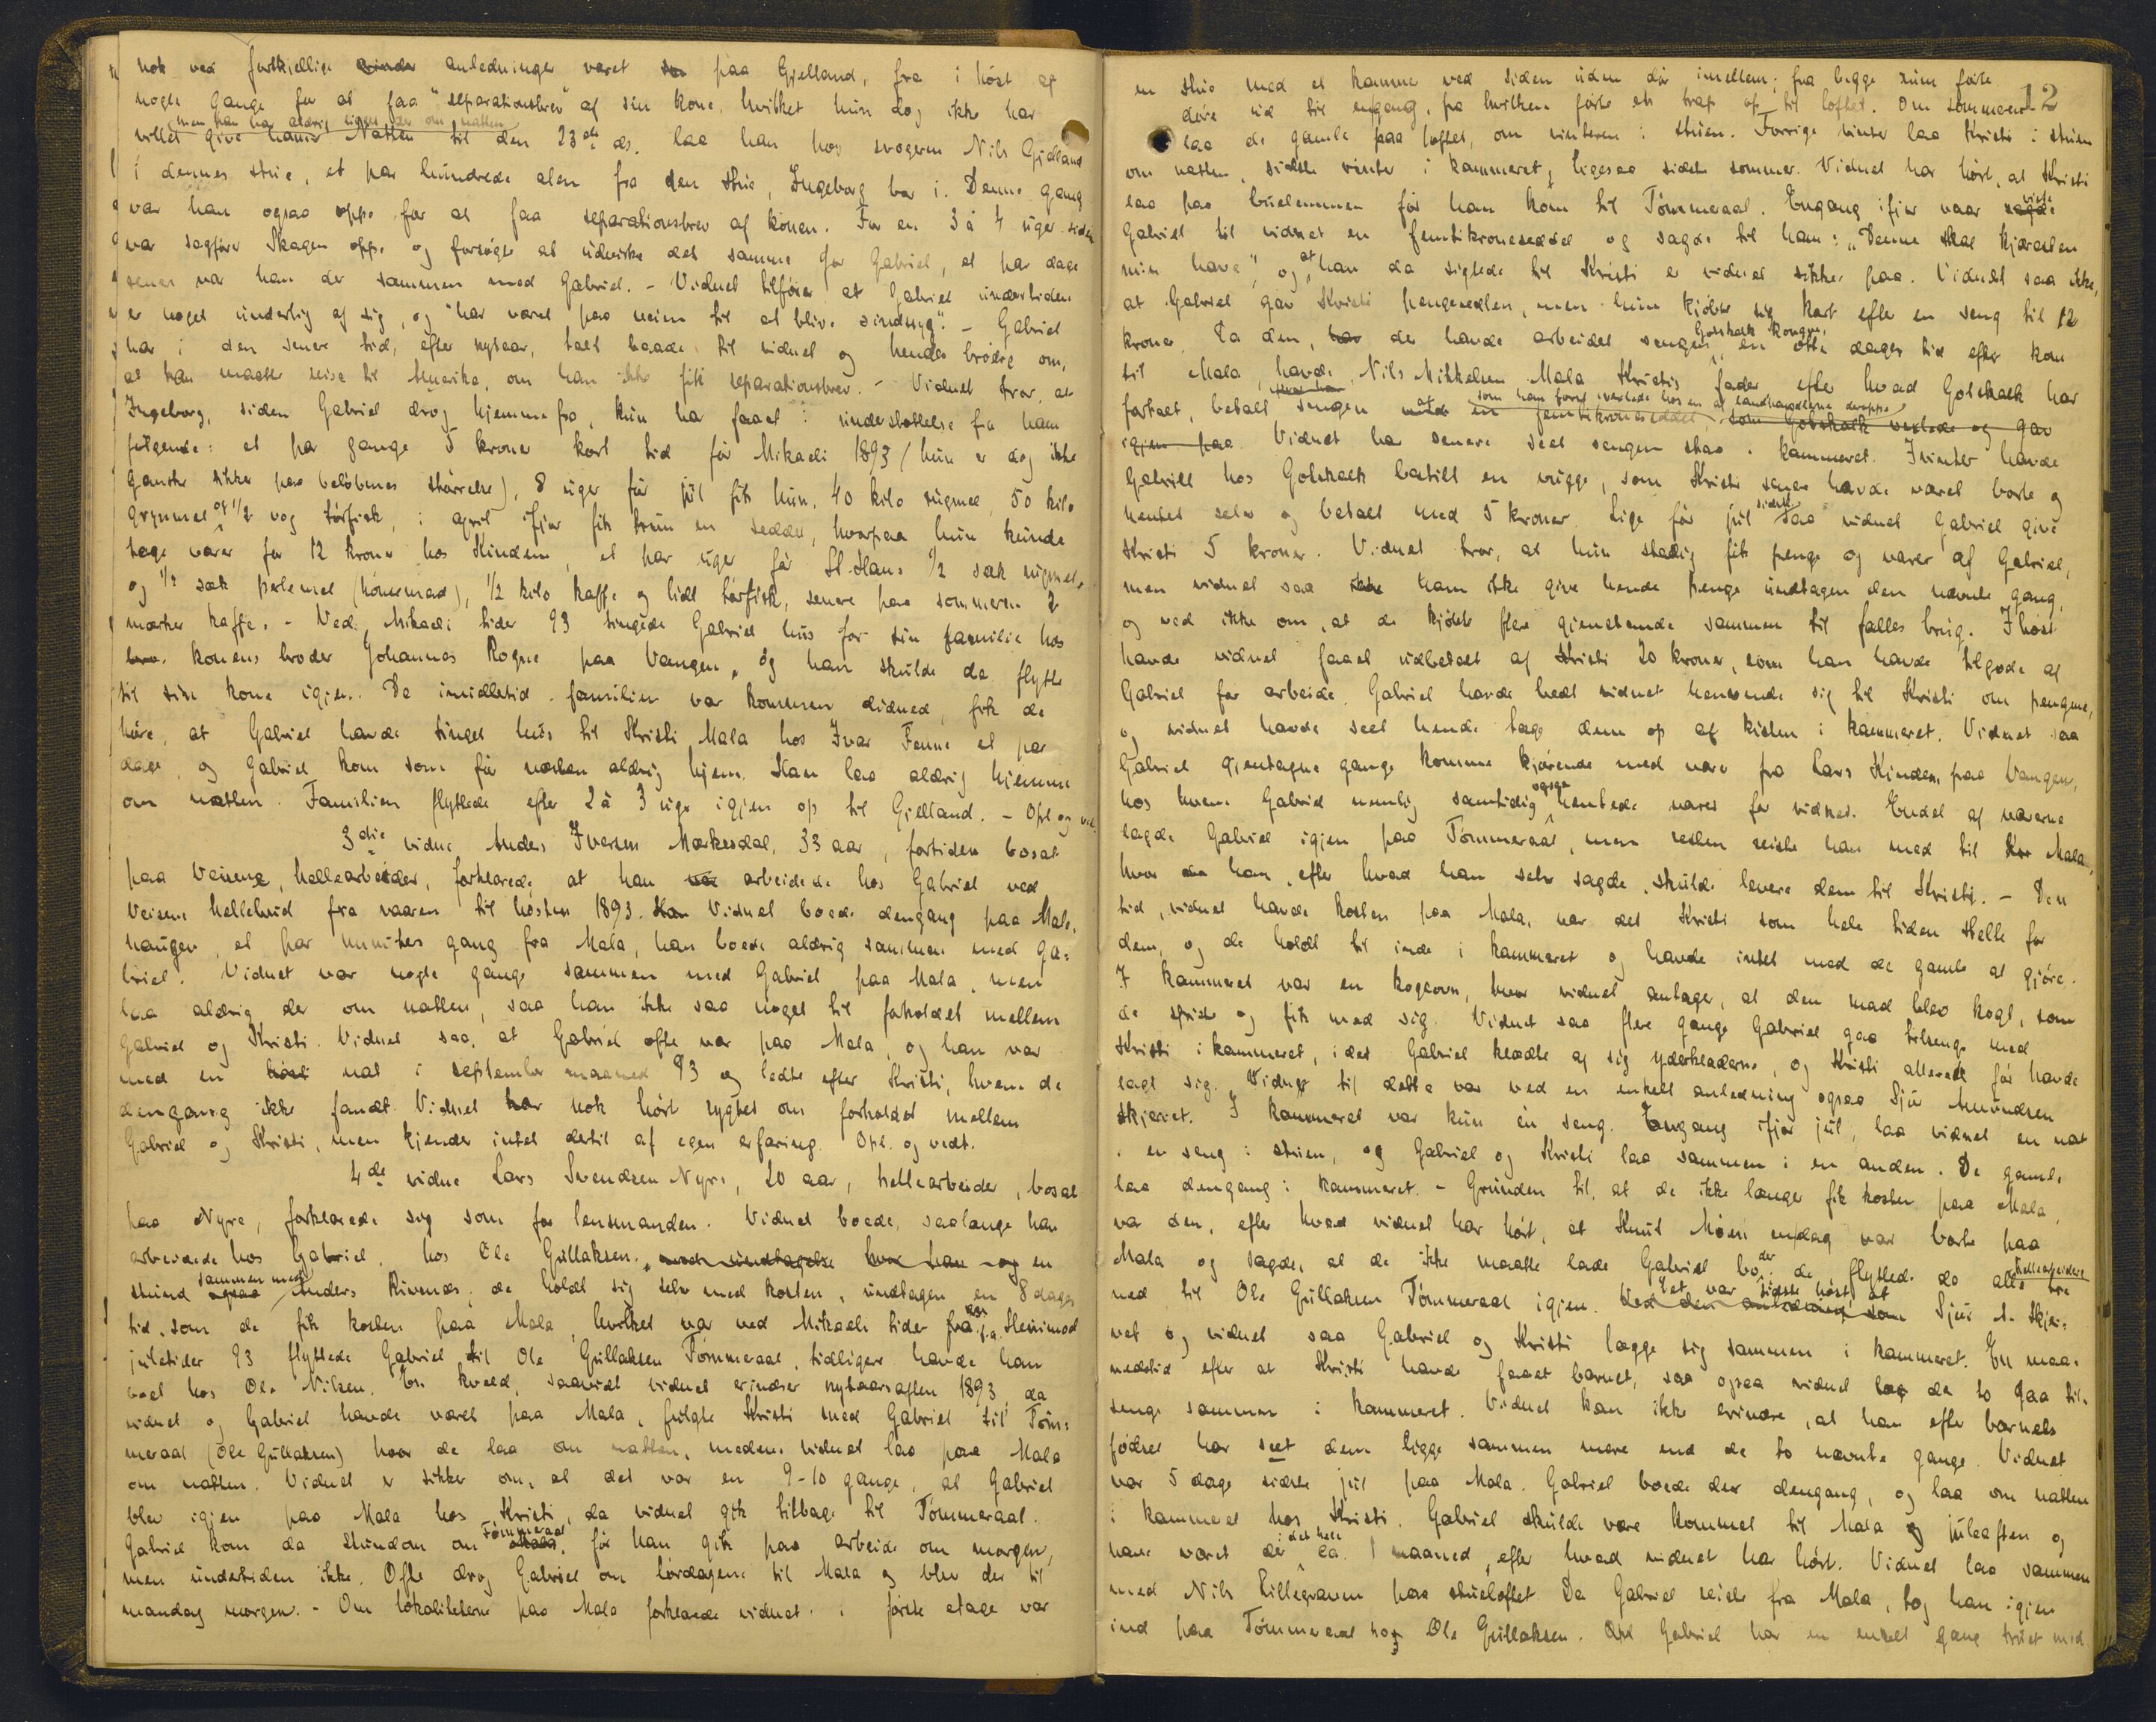 nok ved forskjellige anledninger været paa Gjelland, fra i høst af
nogle gange for at faa "separationsbrev" af sin kone, hvilket hun dog ikke har
men han har aldrig ligget der om natten
villet give ham. Natten til den 23de ds. laa han hos svogeren Nils Gjelland
i dennes stue, et par hundrede alen fra den stue, Ingeborg bor i. Denne gang
var han ogsaa oppe for at faa separationsbrev af konen. For en 3 à 4 uger siden
var sagfører Skagen oppe og forsøgte at udvirke det samme for Gabriel, et par dage
senere var han der sammen med Gabriel. - Vidnet tilføier at Gabriel undertiden
er noget underlig af sig, og "har været paa veien til at blive sindssyg". - Gabriel
har i den senere tid, efter nytaar, talt baade til vidnet og hendes brødre om,
at han maatte reise til Amerika, om han ikke fik separationsbrev. - Vidnet tror, at
Ingeborg, siden Gabriel drog hjemmefra, kun har faaet i understøttelse fra ham
følgende: et par gange 5 kroner kort tid før Mikaeli 1893 (hun er dog ikke
ganske sikker paa beløbenes størrelse), 8 uger før jul fik hun 40 kilo rugmel, 50 kilo
grynmel og 1/2 vog tørfisk, i april ifjor fik hun en seddel, hvorpaa hun kunde
tage varer for 12 kroner hos Kindem, et par uger før St. Hans 1/2 sæk rugmel
og 1/2 sæk perlemel (hønsemad), 1/2 kilo kaffe og lidt tørfisk, senere paa sommeren 2
marker kaffe. - Ved Mikaeli tider 93 tingede Gabriel hus for sin familie hos
konens broder Johannes Rogne paa Vangen, og han skulde da flytte
til sin kone igjen. Da imidlertid familien var kommen didned, fik de
høre, at Gabriel havde tinget hus til Kristi Mala hos Ivar Fenne et par
dage, og Gabriel kom som før næsten aldrig hjem. Han laa aldrig hjemme
om natten. Familien flyttede efter 2 à 3 uger igjen op til Gjelland. - Opl og ved.
3die vidne Anders Iversen Mørkesdal, 33 aar, fortiden bosat
paa Veirene, hellearbeider, forklarede at han arbeidede hos Gabriel ved
Veirene hellebrud fra vaaren til høsten 1893. Vidnet boede dengang paa Male-
haugen, et par minuters gang fra Mala, han boede aldrig sammen med Ga-
briel. Vidnet var nogle gange sammen med Gabriel paa Mala, men
laa aldrig der om natten, saa han ikke saa noget til forholdet mellem
Gabriel og Kristi. Vidnet saa, at Gabriel ofte var paa Mala, og han var
med en nat i september maaned 93 og ledte efter Kristi, hvem de
dengang ikke fandt. Vidnet har nok hørt rygtet om forholdet mellem
Gabriel og Kristi, men kjender intet dertil af egen erfaring. Opl. og vedt.
4de vidne Lars Svendsen Nyre, 20 aar, hellearbeider, bosat
paa Nyre, forklarede sig som for lensmanden. Vidnet boede, saalænge han
arbeidede hos Gabriel, hos Ole Gullaksen, og en
sammen med
stund Anders Rivenes; de holdt sig selv med kosten, undtagen en 8 dages
tid, som de fik kosten paa Mala, hvilket var ved Mikaeli tider f.a. Henimod
juletider 93 flyttede Gabriel til Ole Gullaksen Tømmeraal, tidligere havde han
boet hos Ole Nilsen. En kveld, saavidt vidnet erindrer nytaarsaften 1893, da
vidnet og Gabriel havde været paa Mala, fulgte Kristi med Gabriel til Tøm-
meraal (Ole Gullaksen) hvor de laa om natten, medens vidnet laa paa Mala
om natten. Vidnet er sikker om, at det var en 9-10 gange, at Gabriel
blev igjen paa Mala hos Kristi, da vidnet gik tilbage til Tømmeraal.
Gabriel kom da stundom om Tømmeraal, før han gik paa arbeide om morgen,
men undertiden ikke. Ofte drog Gabriel om lørdagene til Mala og blev der til
mandag morgen. - Om lokaliteterne paa Mala forklarede vidnet: i første etage var
12
en stue med et kammer ved siden uden dør imellem; fra begge rum førte
døre ud til engang, fra hvilken førte en trap op til loftet. Om sommeren
laa de gamle paa loftet, om vinteren i stuen. Forrige vinter laa Kristi i stuen
om natten, sidste vinter i kammeret, ligesaa sidste sommer. Vidnet har hørt, at Kristi
laa paa buelemmen før han kom til Tømmeraal. Engang ifjor vaar viste
Gabriel til vidnet en femtikroneseddel og sagde til ham: "Denne skal kjæresten
min have", og at han da sigtede til Kristi er vidnet sikker paa. Vidnet saa ikke,
at Gabriel gav Kristi pengesedlen, men hun kjøbte sig kort efter en seng til 12
kroner. Da den, der havde arbeidet sengen, Golskalk Rongve, en otte dages tid efter kom
til Mala, havde Nils Mikkelsen Mala Kristis fader efter hvad Golskalk har
fortalt, betalt sengen af en femtikroneseddel, som Golskalk vexlede og gav
som han først vexlede hos en af landhandlerne deroppe
igjen paa. Vidnet har senere seet sengen staa i kammeret. Ivinter havde
Gabriel hos Golskalk bestilt en vugge, som Kristi senere havde været borte og
hentet selv og betalt med 5 kroner. Lige før jul sidst saa vidnet Gabriel give
Kristi 5 kroner. Vidnet tror, at hun stadig fik penge og varer af Gabriel,
men vidnet saa ham ikke give hende penge undtagen den nævnte gang,
og ved ikke om, at de kjøbte flere gjenstande sammen til fælles brug. Ihøst
havde vidnet faaet udbetalt af Kristi 20 kroner, som han havde tilgode af
Gabriel for arbeide. Gabriel havde bedt vidnet henvende sig til Kristi om pengene,
og vidnet havde seet hende tage dem op af kisten i kammeret. Vidnet saa
Gabriel gjentagne gange komme kjørende med varer fra Lars Kinden paa Vangen,
hos hvem Gabriel nemlig samtidig ogsaa hentede varer for vidnet. Endel af varerne
lagde Gabriel igjen paa Tømmeraal, men resten reiste han med til Mala,
hvor han, efter hvad han selv sagde, skulde levere dem til Kristi. - Den
tid, vidnet havde kosten paa Mala, var det Kristi som hele tiden stelte for
dem, og de holdt til inde i kammeret og havde intet med de gamle at gjøre.
I kammeret var en kogeovn, hvor vidnet antager, at den mad blev kogt, som
de spiste og fik med sig. Vidnet saa flere gange Gabriel gaa tilsengs med
Kristi i kammeret, idet Gabriel klædte af sig yderklæderne, og Kristi allerede før havde
lagt sig. Vidne til dette var ved en enkelt anledning ogsaa Sjur Amundsen
Skjervet. I kammeret var kun én seng. Engang ifjor jul, laa vidnet en nat
i en seng i stuen, og Gabriel og Kristi laa sammen i en anden. De gamle
laa dengang i kammeret. - Grunden til, at de ikke længer fik kosten paa Mala,
var den, efter hvad vidnet har hørt, at Knut Møen endag var borte paa
Mala og sagde, at de ikke maatte lade Gabriel bo der; de flyttede da alle tre hellearbeidere
ned til Ole Gullaksen Tømmeraal igjen. Det var sidste høst at Sjur A. Skjer-
vet og vidnet saa Gabriel og Kristi lægge sig sammen i kammeret. En maa-
nedstid efter at Kristi havde faaet barnet, saa ogsaa vidnet de to gaa til-
sengs sammen i kammeret. Vidnet kan ikke erindre, at han efter barnets
fødsel har seet dem ligge sammen mere end de to nævnte gange. Vidnet
var 5 dage sidste jul paa Mala. Gabriel boede der dengang, og laa om natten
i kammeret hos Kristi. Gabriel skulde være kommet til Mala juleaften og
have været der i det hele ca. 1 maaned, efter hvad vidnet har hørt. Vidnet laa sammen
med Nils Lillegraven paa stueloftet. Da Gabriel reiste fra Mala, tog han igjen
ind paa Tømmeraal hos Ole Gullaksen. Gabriel har en enkelt gang truet med